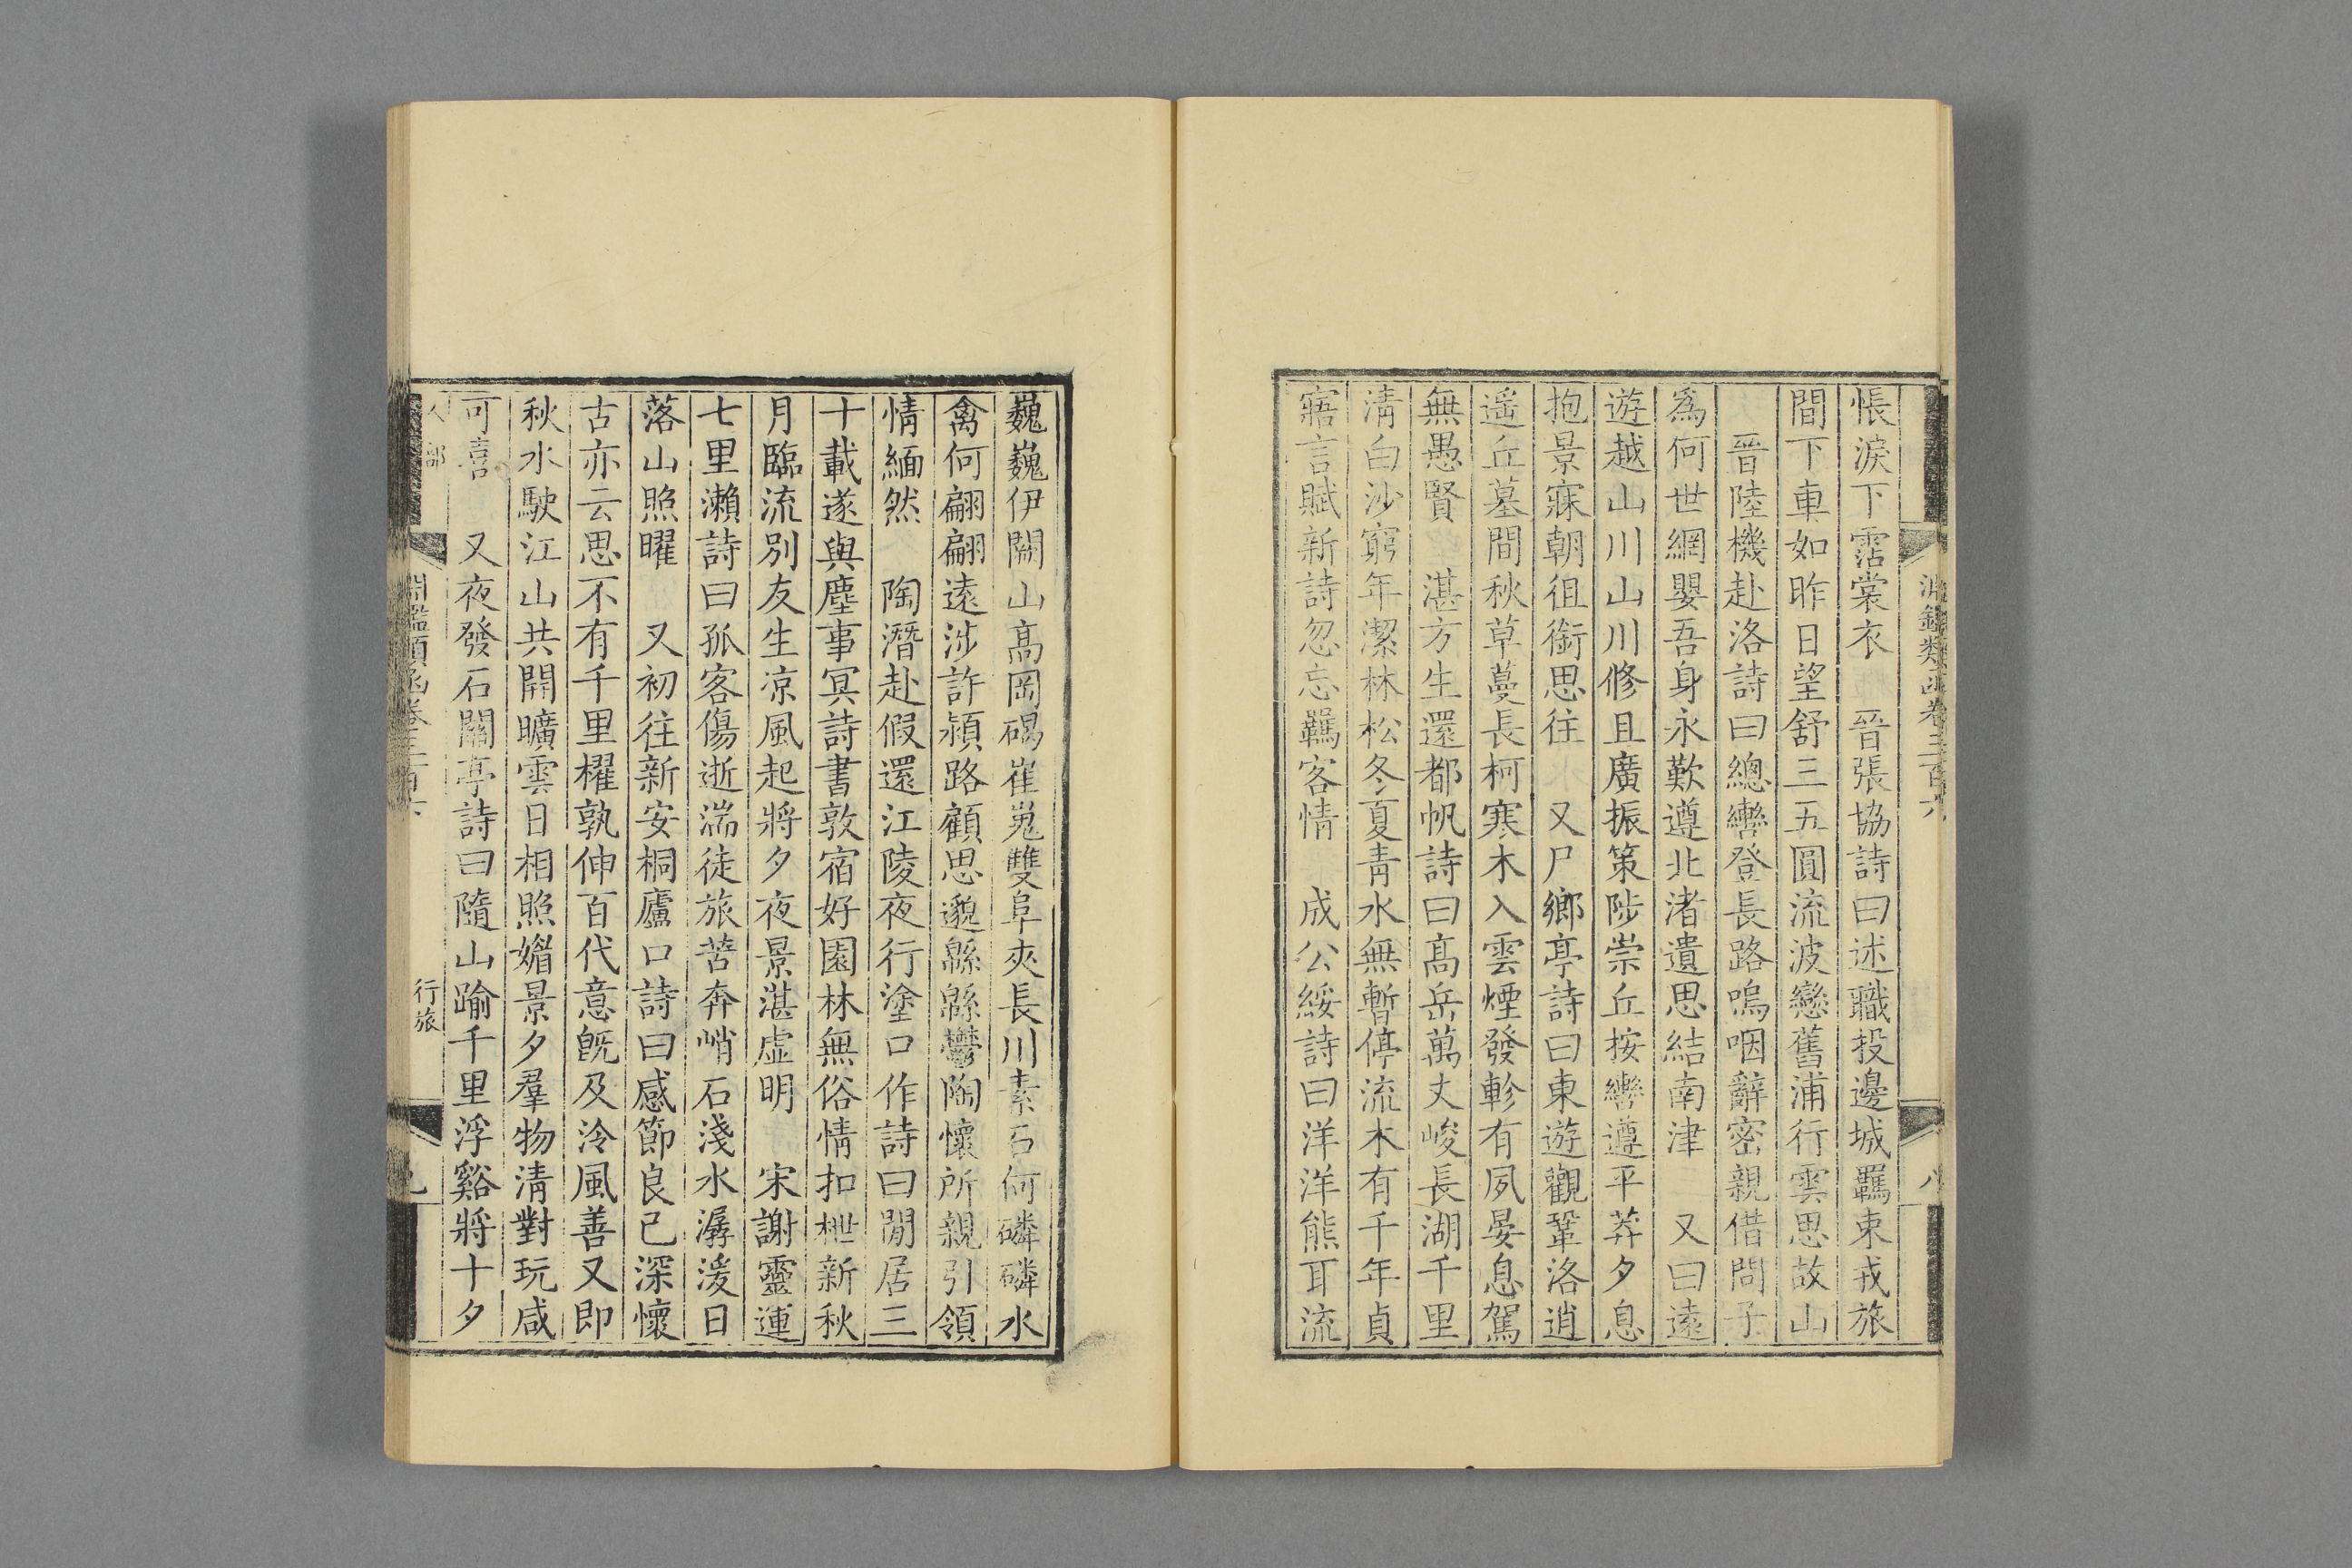 淵鑑類函卷三百六
八
悵淚下霑裳衣　晉張協詩曰述職投邊城羈束戎旅
間下車如昨日望舒三五圓流波戀舊浦行雲思故山
晉陸機赴洛詩曰總轡登長路嗚咽辭密親借問子
爲何世網嬰吾身永歎遵北渚遺思結南津　又曰遠
遊越山川山川修且廣振策陟崇丘按轡遵平莽夕息
抱景寐朝徂銜思往　又尸鄉亭詩曰東遊觀鞏洛逍
遥丘墓間秋草蔓長柯寒木入雲煙發軫有夙晏息駕
無愚賢　湛方生還都帆詩曰高岳萬丈峻長湖千里
淸白沙窮年潔林松冬夏靑水無暫停流木有千年貞
寤言賦新詩忽忘羈客情　成公綏詩曰洋洋熊耳流
巍巍伊闕山高岡碣崔嵬雙阜夾長川素石何磷磷水
禽何翩翩遠涉許潁路顧思邈緜緜鬱陶懷所親引領
情緬然　陶潛赴假還江陵夜行塗口作詩曰閒居三
十載遂與塵事冥詩書敦宿好園林無俗情扣枻新秋
月臨流別友生凉風起將夕夜景湛虛明　宋謝靈運
七里瀨詩曰孤客傷逝湍徒旅苦奔峭石淺水潺湲日
落山照曜　又初往新安桐廬口詩曰感節良已深懷
古亦云思不有千里櫂孰伸百代意旣及泠風善又即
秋水駛江山共開曠雲日相照媚景夕羣物淸對玩咸
可喜　又夜發石關亭詩曰隨山踰千里浮谿將十夕
人部
淵鑑類函卷三百六
行旅